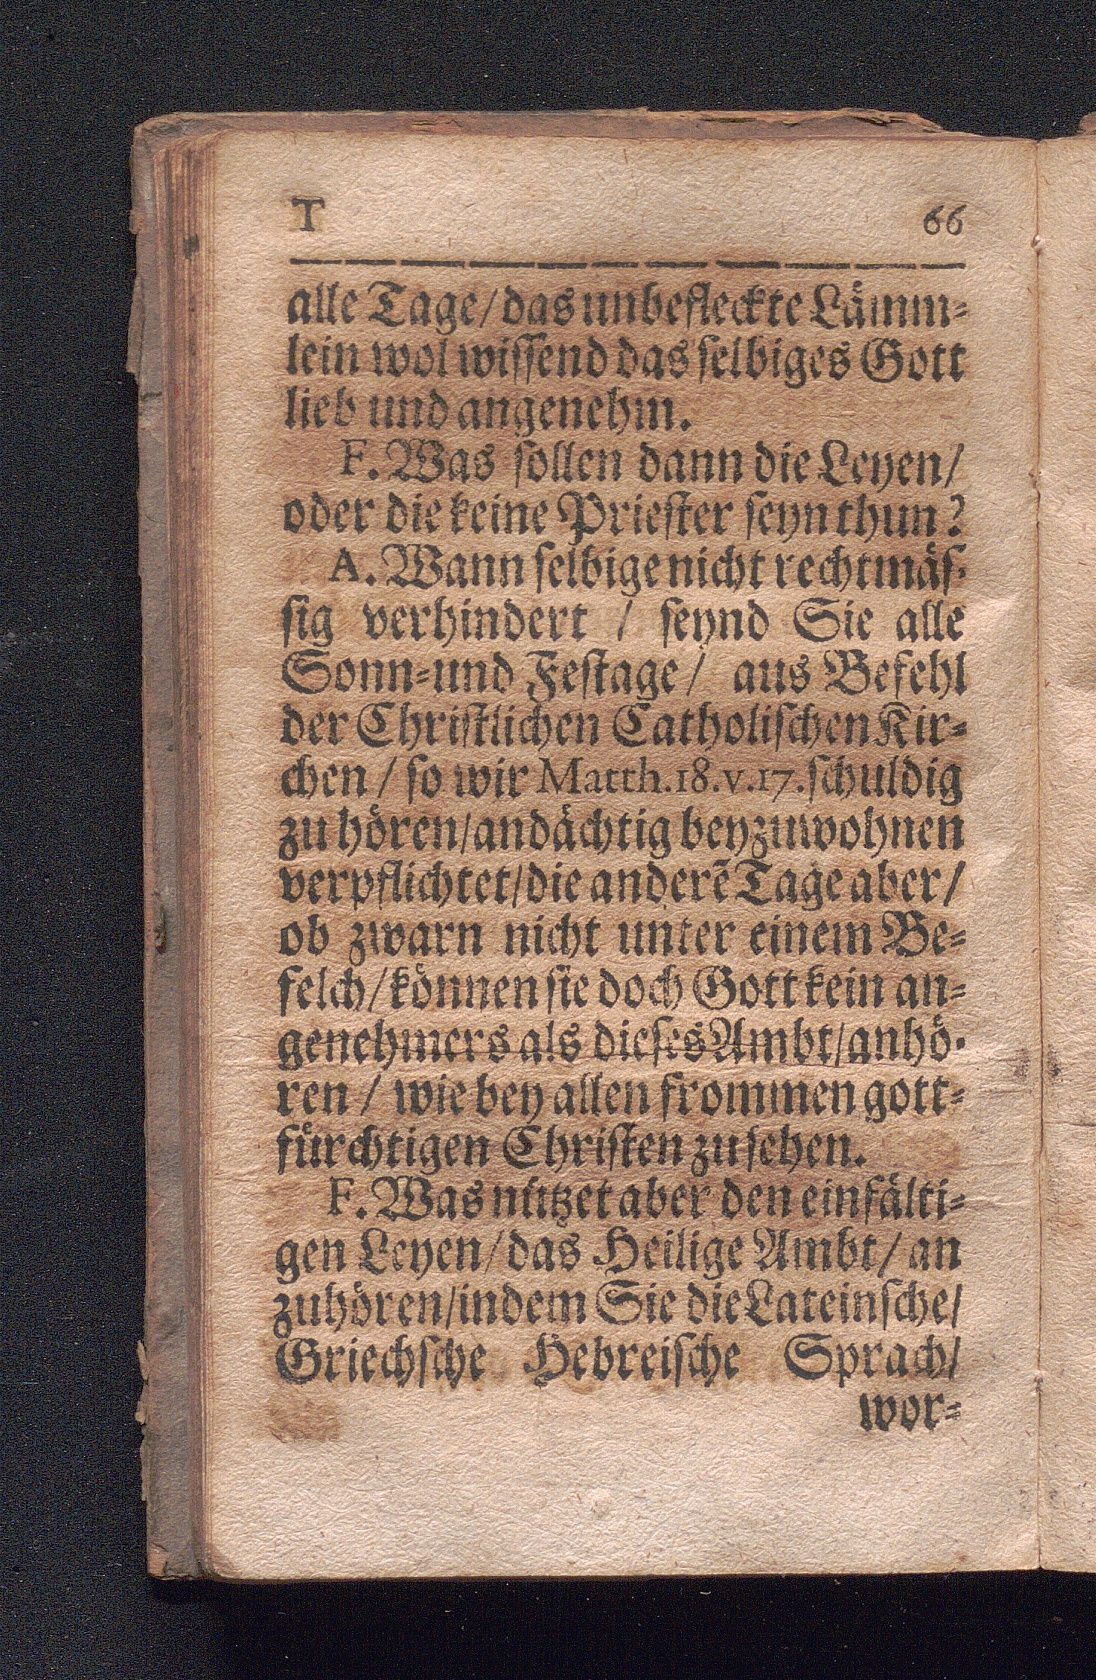 T 66
alle Tage/ das unbefleckte Lämm-
lein wol wissend das selbiges Gott
lieb und angenehm.
F. Was sollen dann die Leyen/
oder die keine Priester seyn thun?
A. Wann selbige nicht rechtmäs-
sig verhindert / seynd Sie alle
Sonn-und Festage/ aus Befehl
der Christlichen Catholischen Kir-
chen / so wir Matth. 18. v. 17. schuldig
zu hören/ andächtig beyzuwohnen
verpflichtet/ die anderẽ Tage aber/
ob zwarn nicht unter einem Be-
felch/ können sie doch Gott kein an-
genehmers als dieses Ambt/ anhö-
ren / wie bey allen frommen gott-
fürchtigen Christen zu sehen.
F. Was nützet aber den einfälti-
gen Leyen/ das Heilige Ambt/ an
zuhören/ indem Sie die Lateinsche/
Griechsche Hebreische Sprach/
wor-